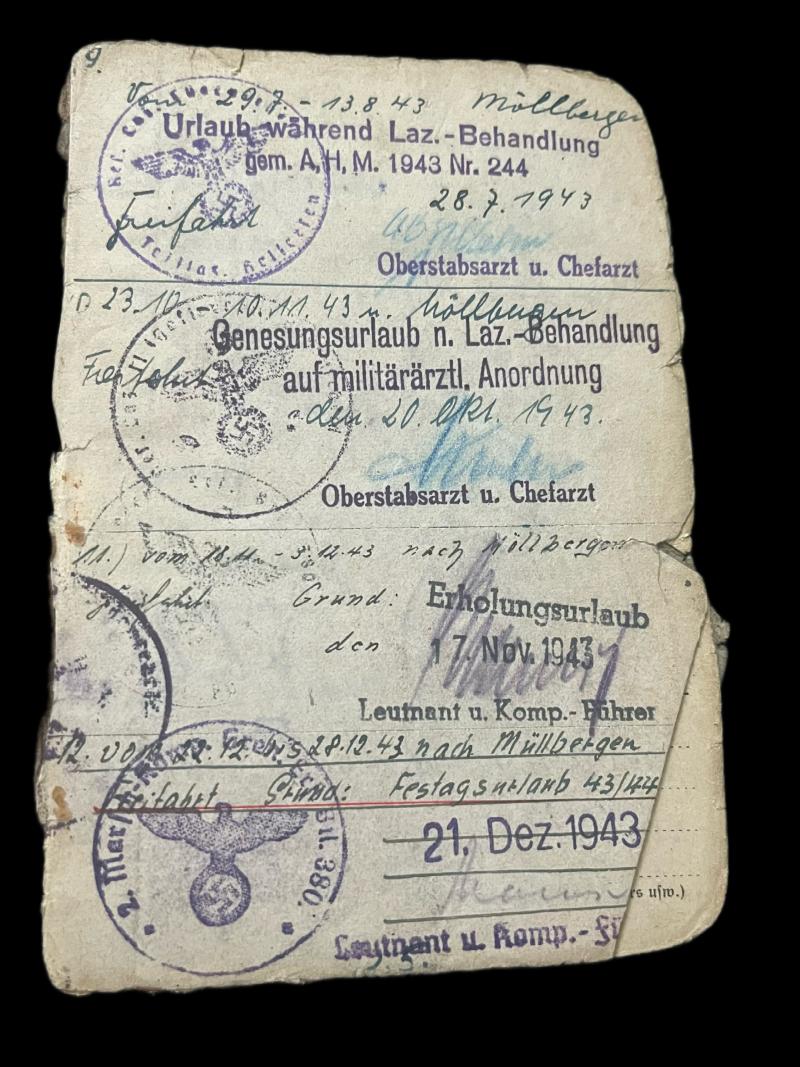 9
Vom 29.7. - 13.8.43 Möllbergen
Urlaub während Laz.-Behandlung
gem. A.H.M. 1943 Nr. 244
28.7.1943
Freifahrt
Oberstabsarzt u. Chefarzt
23.10. 10.11.43 n. Möllbergen
Genesungsurlaub n. Laz.-Behandlung
Freifahrt auf militärärztl. Anordnung
den 20. Okt. 1943.
Oberstabsarzt u. Chefarzt
11.) vom 18.11. - 3.12.43 nach Möllbergen
Freifahrt Grund: Erholungsurlaub
den 17. Nov. 1943
Leutnant u. Komp.-Führer
12. vom 22.12. bis 28.12.43 nach Müllbergen
Freifahrt Grund: Festagsurlaub 43/44
21. Dez. 1943
rs usw.)
Leutnant u. Komp.-Fü